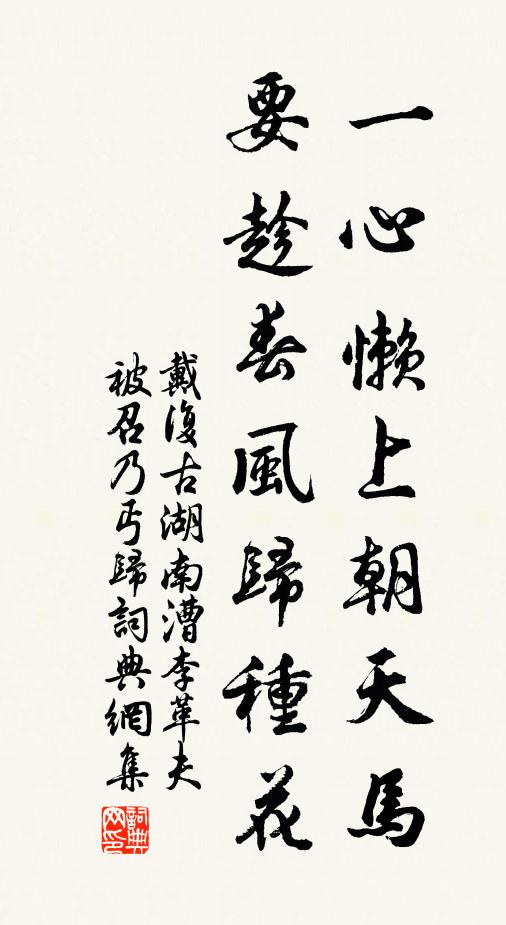 一心懶上朝天馬
要趁春風歸種花
戴復古湖南漕李革夫
被召乃丐歸詞典網集
詞典
网印